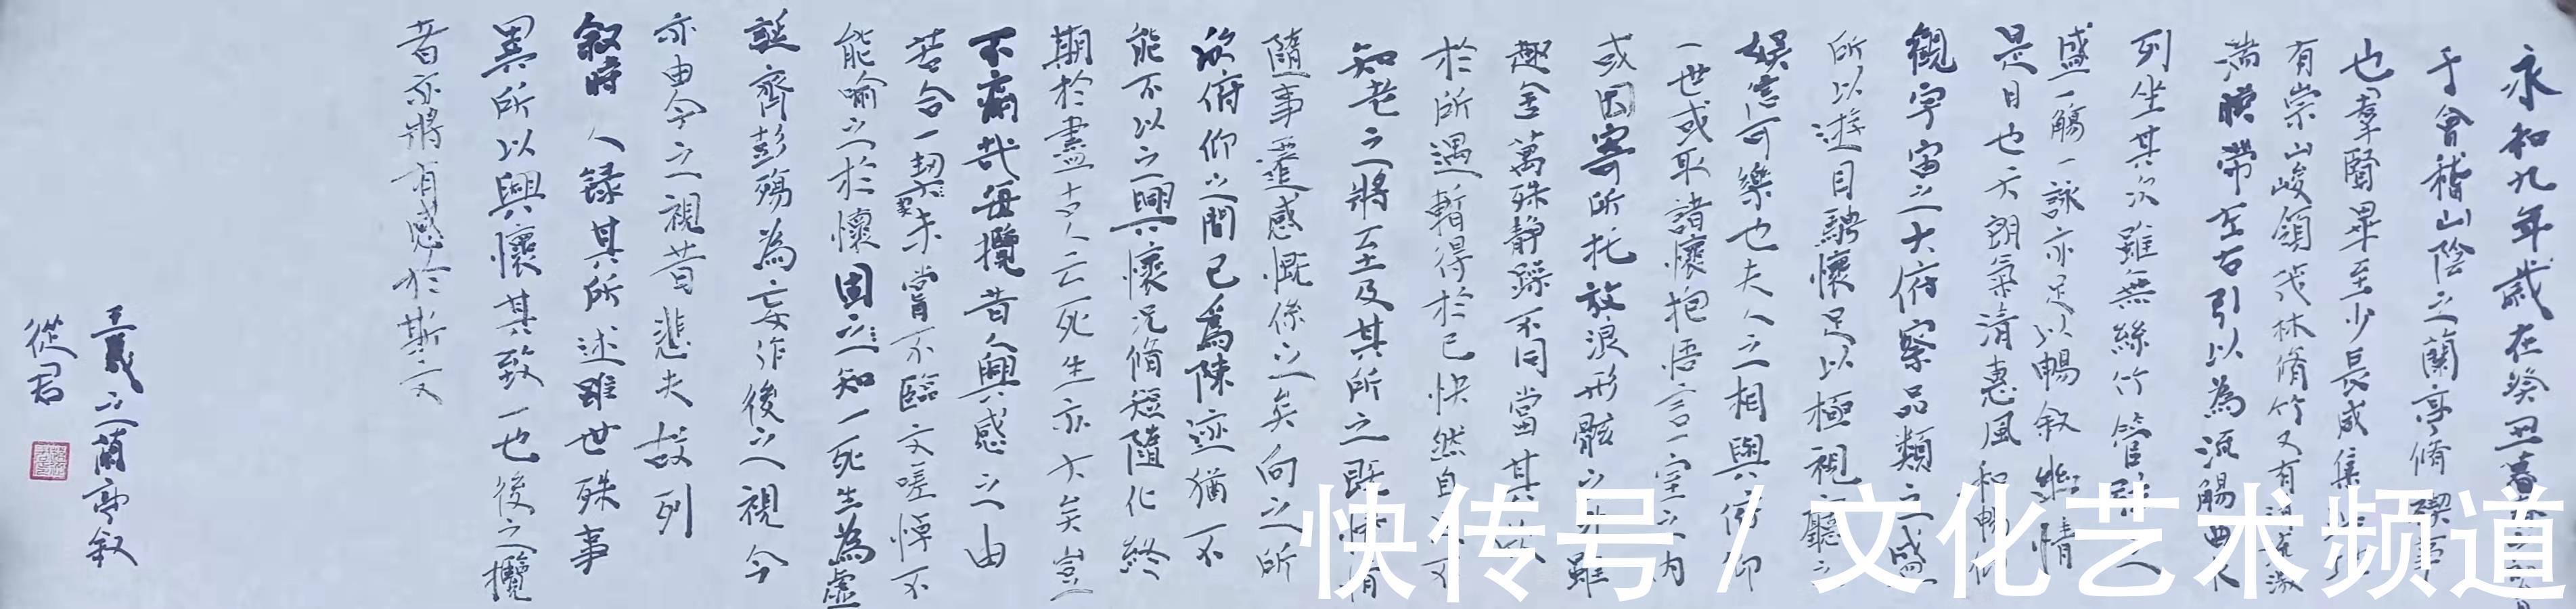 永和九年歲在癸丑暮春之初會
于會稽山陰之蘭亭脩禊事
也羣賢畢至少長咸集此地
有崇山峻領茂林脩竹又有清流激
湍暎帶左右引以為流觴曲水
列坐其次雖無絲竹管弦之
盛一觴一詠亦足以暢叙幽情
是日也天朗氣清惠風和暢仰
觀宇宙之大俯察品類之盛
所以遊目騁懷足以極視聽之
娛信可樂也夫人之相與俯仰
一世或取諸懷抱悟言一室之內
或因寄所托放浪形骸之外雖
趣舍萬殊靜躁不同當其欣
於所遇暫得於己快然自足不
知老之將至及其所之既惓情
隨事遷感慨係之矣向之所
欣俯仰之間已為陳迹猶不
能不以之興懷況脩短隨化終
期於盡古人云死生亦大矣豈
不痛哉每攬昔人興感之由
若合一契未嘗不臨文嗟悼不
能喻之於懷固知一死生為虛
誕齊彭殤為妄作後之視今
亦由今之視昔悲夫故列
叙時人錄其所述雖世殊事
異所以興懷其致一也後之攬
者亦將有感於斯文
羲之蘭亭叙
從君
快传号/文化艺术频道